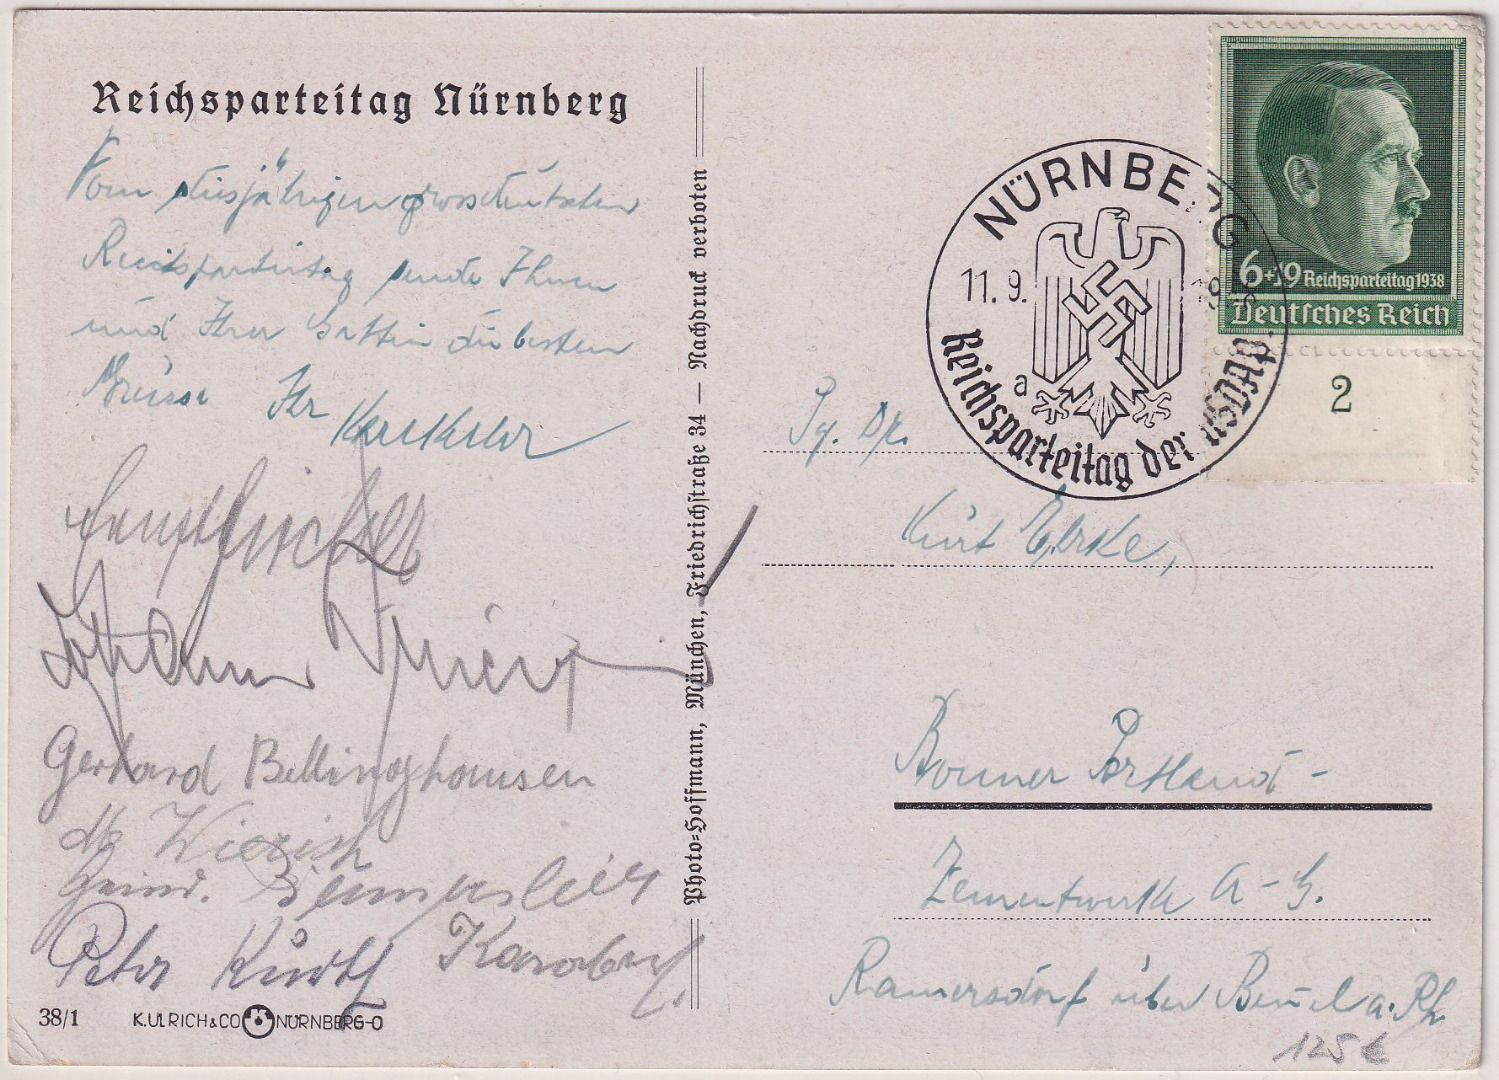 Reichsparteitag Nürnberg
Vom diesjährigen grossdeutschen
Reichsparteitag sende Ihnen
und Ihrer Gattin die besten
Grüsse Ihr
Gerhard Bellinghausen
Peter Kürtz
38/1 K. ULRICH & CO NÜRNBERG-O
Photo-Hoffmann, München, Friedrichstraße 34 — Nachdruck verboten
NÜRNBERG
11.9. 1938
a
Reichsparteitag der NSDAP.
6+19 Reichsparteitag 1938
Deutsches Reich
2
Pg. Dr.
Kurt
Bonner Portland-
Zementwerke A-G.
Ramersdorf über Beuel a. Rh.
125 €